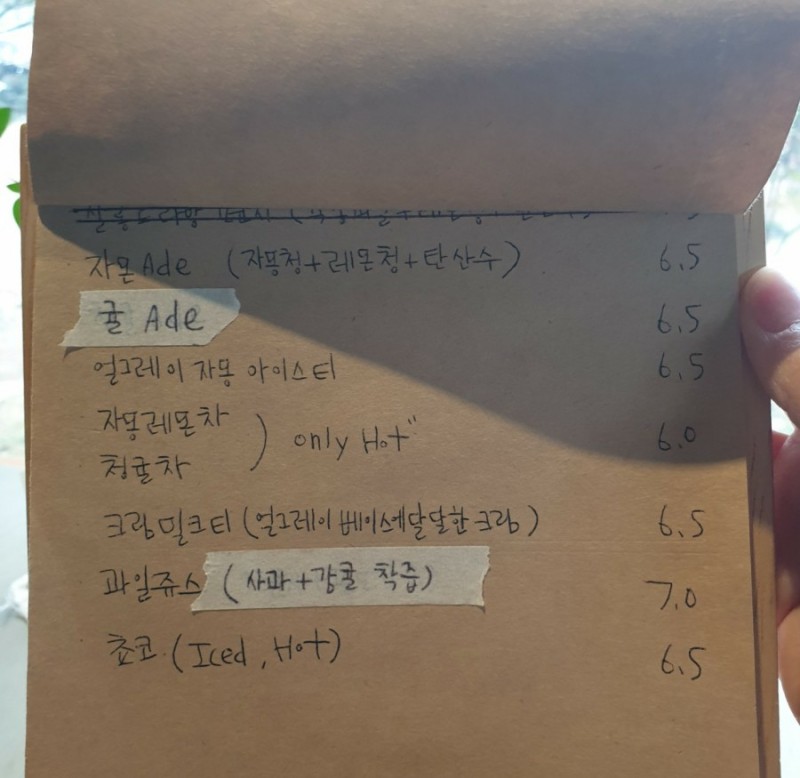 자몽 Ade (자몽청+레몬청+탄산수) 6.5
귤 Ade 6.5
얼그레이 자몽 아이스티 6.5
자몽레몬차
청귤차 ) only Hot" 6.0
크림밀크티 (얼그레이 베이스에 달달한 크림) 6.5
과일쥬스 (사과+감귤 착즙) 7.0
쵸코 (Iced, Hot) 6.5